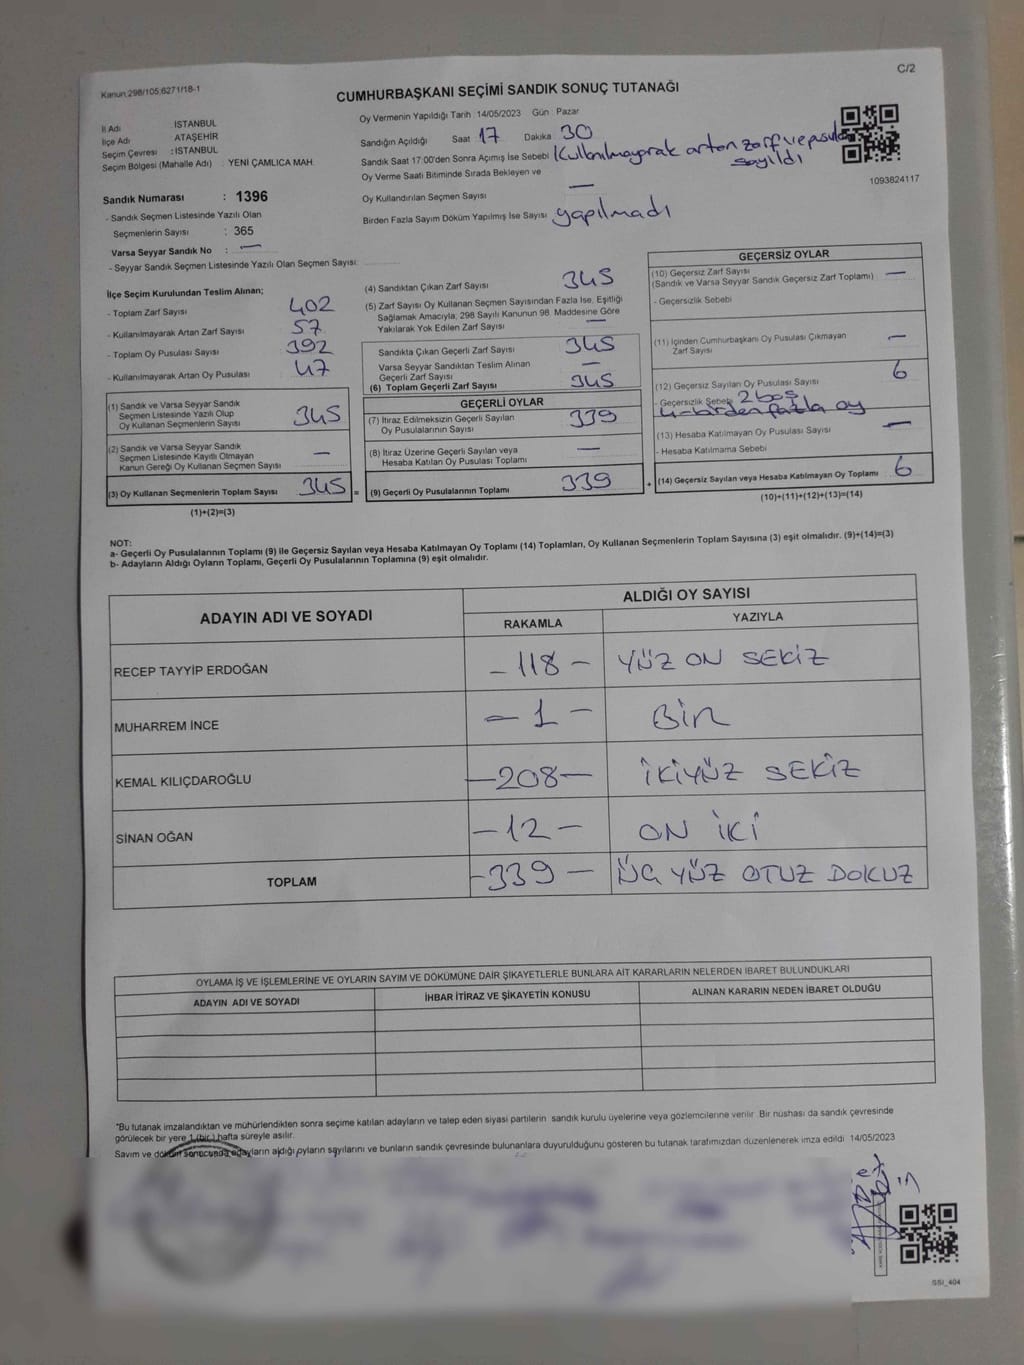 C/2
Kanun 298/105,6271/18-1
CUMHURBAŞKANI SEÇİMİ SANDIK SONUÇ TUTANAĞI
İl Adı : İSTANBUL
İlçe Adı : ATAŞEHİR
Seçim Çevresi : İSTANBUL
Seçim Bölgesi (Mahalle Adı) : YENİ ÇAMLICA MAH.
Sandık Numarası : 1396
- Sandık Seçmen Listesinde Yazılı Olan
Seçmenlerin Sayısı : 365
Varsa Seyyar Sandık No : —
- Seyyar Sandık Seçmen Listesinde Yazılı Olan Seçmen Sayısı:
Oy Vermenin Yapıldığı Tarih : 14/05/2023 Gün : Pazar
Sandığın Açıldığı Saat 17 Dakika 30
Sandık Saat 17:00'den Sonra Açımış İse Sebebi Kullanılmayarak artan zarf ve pusula
sayıldı
Oy Verme Saati Bitiminde Sırada Bekleyen ve
Oy Kullandırılan Seçmen Sayısı —
Birden Fazla Sayım Döküm Yapılmış İse Sayısı yapılmadı
1093824117
İlçe Seçim Kurulundan Teslim Alınan;
- Toplam Zarf Sayısı 402
- Kullanılmayarak Artan Zarf Sayısı 57
- Toplam Oy Pusulası Sayısı 392
- Kullanılmayarak Artan Oy Pusulası 47
(1) Sandık ve Varsa Seyyar Sandık
Seçmen Listesinde Yazılı Olup
Oy Kullanan Seçmenlerin Sayısı 345
(2) Sandık ve Varsa Seyyar Sandık
Seçmen Listesinde Kayıtlı Olmayan
Kanun Gereği Oy Kullanan Seçmen Sayısı —
(3) Oy Kullanan Seçmenlerin Toplam Sayısı 345 =
(1)+(2)=(3)
(4) Sandıktan Çıkan Zarf Sayısı 345
(5) Zarf Sayısı Oy Kullanan Seçmen Sayısından Fazla İse, Eşitliği
Sağlamak Amacıyla, 298 Sayılı Kanunun 98. Maddesine Göre
Yakılarak Yok Edilen Zarf Sayısı —
Sandıkta Çıkan Geçerli Zarf Sayısı 345
Varsa Seyyar Sandıktan Teslim Alınan
Geçerli Zarf Sayısı —
(6) Toplam Geçerli Zarf Sayısı 345
GEÇERLİ OYLAR
(7) İtiraz Edilmeksizin Geçerli Sayılan
Oy Pusulalarının Sayısı 339
(8) İtiraz Üzerine Geçerli Sayılan veya
Hesaba Katılan Oy Pusulası Toplamı —
(9) Geçerli Oy Pusulalarının Toplamı 339 +
GEÇERSİZ OYLAR
(10) Geçersiz Zarf Sayısı
(Sandık ve Varsa Seyyar Sandık Geçersiz Zarf Toplamı) —
- Geçersizlik Sebebi
(11) İçinden Cumhurbaşkanı Oy Pusulası Çıkmayan
Zarf Sayısı —
(12) Geçersiz Sayılan Oy Pusulası Sayısı 6
- Geçersizlik Sebebi 2 boş
4-birden fazla oy
(13) Hesaba Katılmayan Oy Pusulası Sayısı —
- Hesaba Katılmama Sebebi
(14) Geçersiz Sayılan veya Hesaba Katılmayan Oy Toplamı 6
(10)+(11)+(12)+(13)=(14)
NOT:
a- Geçerli Oy Pusulalarının Toplamı (9) ile Geçersiz Sayılan veya Hesaba Katılmayan Oy Toplamı (14) Toplamları, Oy Kullanan Seçmenlerin Toplam Sayısına (3) eşit olmalıdır. (9)+(14)=(3)
b- Adayların Aldığı Oyların Toplamı, Geçerli Oy Pusulalarının Toplamına (9) eşit olmalıdır.
ADAYIN ADI VE SOYADI ALDIĞI OY SAYISI
RAKAMLA YAZIYLA
RECEP TAYYİP ERDOĞAN -118- YÜZ ON SEKİZ
MUHARREM İNCE -1- BİR
KEMAL KILIÇDAROĞLU -208- İKİYÜZ SEKİZ
SİNAN OĞAN -12- ON İKİ
TOPLAM -339- ÜÇ YÜZ OTUZ DOKUZ
OYLAMA İŞ VE İŞLEMLERİNE VE OYLARIN SAYIM VE DÖKÜMÜNE DAİR ŞİKAYETLERLE BUNLARA AİT KARARLARIN NELERDEN İBARET BULUNDUKLARI
ADAYIN ADI VE SOYADI İHBAR İTİRAZ VE ŞİKAYETİN KONUSU ALINAN KARARIN NEDEN İBARET OLDUĞU
*Bu tutanak imzalandıktan ve mühürlendikten sonra seçime katılan adayların ve talep eden siyasi partilerin sandık kurulu üyelerine veya gözlemcilerine verilir. Bir nüshası da sandık çevresinde
görülecek bir yere 1 (bir) hafta süreyle asılır.
Sayım ve döküm sonucunda adayların aldığı oyların sayılarını ve bunların sandık çevresinde bulunanlara duyurulduğunu gösteren bu tutanak tarafımızdan düzenlenerek imza edildi 14/05/2023
SSI_404